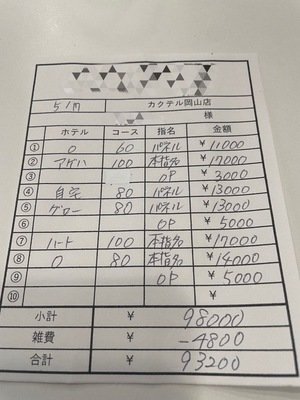 5/17 カクテル岡山店
様
ホテル コース 指名 金額
① O 60 パネル ¥11000
② アゲハ 100 本指名 ¥17000
③ OP ¥3000
④ 自宅 80 パネル ¥13000
⑤ 80 パネル ¥13000
⑥ OP ¥5000
⑦ ハート 100 本指名 ¥17000
⑧ O 80 本指名 ¥14000
⑨ OP ¥5000
⑩ ¥
小計 ¥ 98000
雑費 ¥ -4800
合計 ¥ 93200